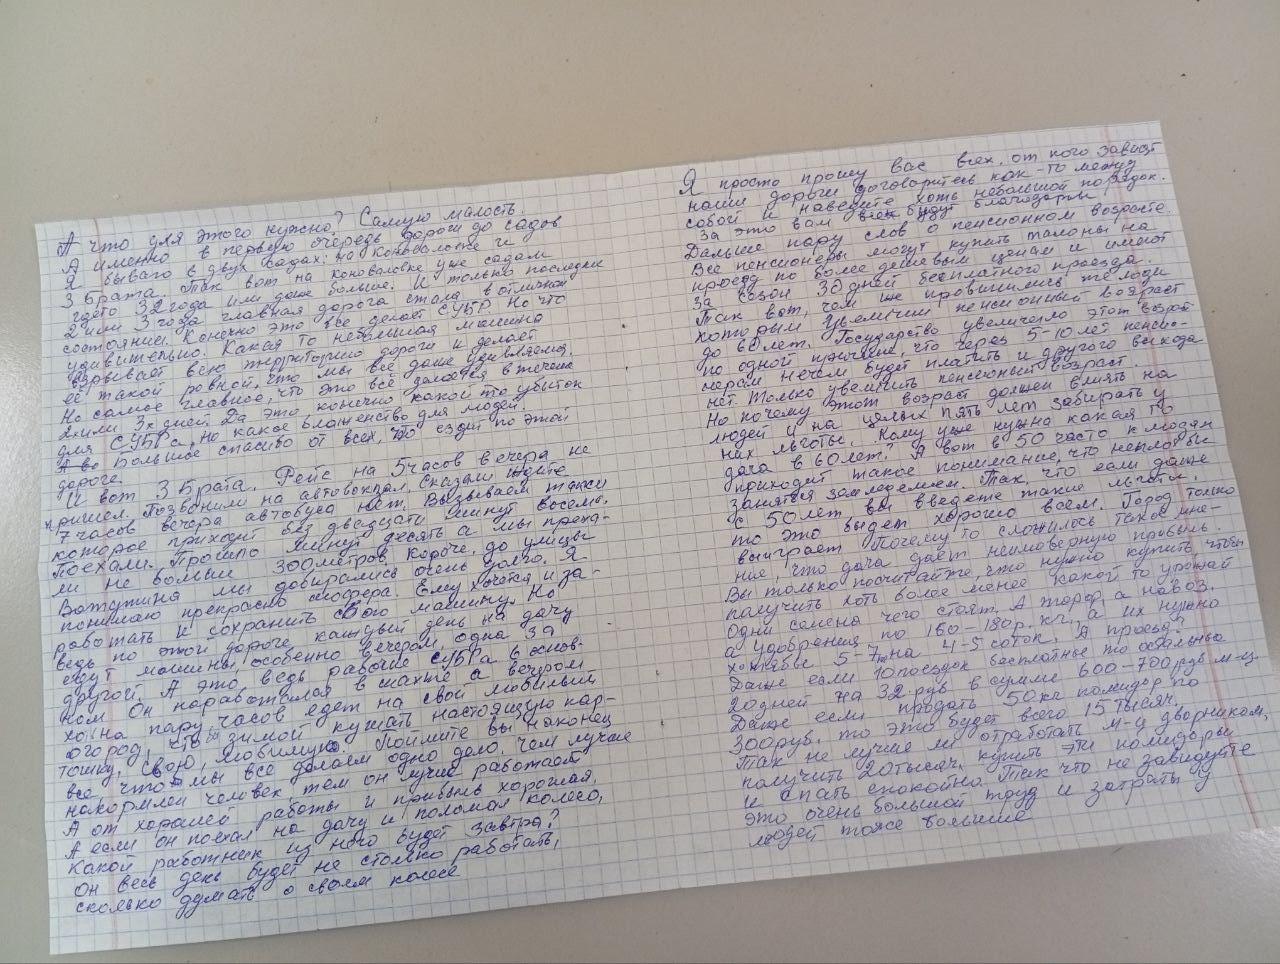 А что для этого нужно? Самую малость.
А именно в первую очередь дороги до садов
Я бываю в двух садах: на Коноваловке и
3 Брата. Так вот на Коноваловке уже садам
где то 32 года или даже больше. И только последние
2 или 3 года главная дорога стала в отличном
состоянии. Конечно это все делает СУБР. Но что
удивительно. Какая то небольшая машина
взрывает всю территорию дороги и делает
её такой ровной, что мы все даже удивляемся.
Но самое главное, что это всё делается в течение
2х или 3х дней. Да это конечно какой то убыток
для СУБРа, но какое блаженство для людей.
А во Большое спасибо от всех, кто ездит по этой
дороге.
И вот 3 Брата. Рейс на 5 часов вечера не
пришел. Позвонили на автовокзал. Сказали ждите
7 часов вечера автобуса нет. Вызываем такси
которое приходит без двадцати минут восемь.
Поехали. Прошло минут десять а мы проеха-
ли не больше 300 метров. Короче, до улицы
Ватутина мы добирались очень долго. Я
понимаю прекрасно шофера. Ему хочется и за-
работать и сохранить свою машину. Но
ведь по этой дороге каждый день на дачу
едут машины, особенно вечером одна за
другой. А это ведь рабочие СУБРа в основ-
ном. Он наработался в шахте а вечером
хоть на пару часов едет на свой любимый
огород, чтобы зимой кушать настоящую кар-
тошку, свою, любимую. Поймите вы наконец
все, что мы все делаем одно дело, чем лучше
накормлен человек тем он лучше работает
А от хорошей работы и прибыль хорошая.
А если он поехал на дачу и поломал колесо,
какой работник из него будет завтра?
он весь день будет не столько работать,
сколько думать о своем колесе
Я просто прошу вас всех, от кого зависят
наши дороги договоритесь как-то между
собой и наведите хоть небольшой порядок.
За это вам все будут благодарны
Дальше пару слов о пенсионном возрасте.
Все пенсионеры могут купить талоны на
проезд по более дешевым ценам и имеют
за сезон 30 дней бесплатного проезда.
Так вот, чем же провинились те люди
которым увеличили пенсионный возраст
до 60 лет. Государство увеличило этот возраст
по одной причине, что через 5-10 лет пенсио-
нерам нечем будет платить и другого выхода
нет. Только увеличить пенсионный возраст.
Но почему этот возраст должен влиять на
людей и на целых пять лет забирать у
них льготы. Кому уже нужна какая то
дача в 60 лет? А вот в 50 часто к людям
приходит такое понимание, что неплохо бы
заняться земледелием. Так, что если даже
с 50 лет вы введете такие льготы,
то это выйдет хорошо всем. Город только
выиграет. Почему то сложилось такое мне-
ние, что дача дает неимоверную прибыль.
Вы только посчитайте, что нужно купить чтобы
получить хоть более менее какой то урожай
Одни семена чего стоят. А торф а навоз.
а удобрения по 160-180 р. кг., а их нужно
хотя бы 5-7 на 4-5 соток. А проезд?
Даже если 10 поездок бесплатные то остальные
20 дней на 32 руб в сумме 600-700 руб м-ц.
Даже если продать 50 кг помидор по
300 руб, то это будет всего 15 тысяч.
Так не лучше ли отработать м-ц дворником,
получить 20 тысяч, купить эти помидоры
и спать спокойно. Так что не завидуйте
это очень большой труд и затраты у
людей тоже большие